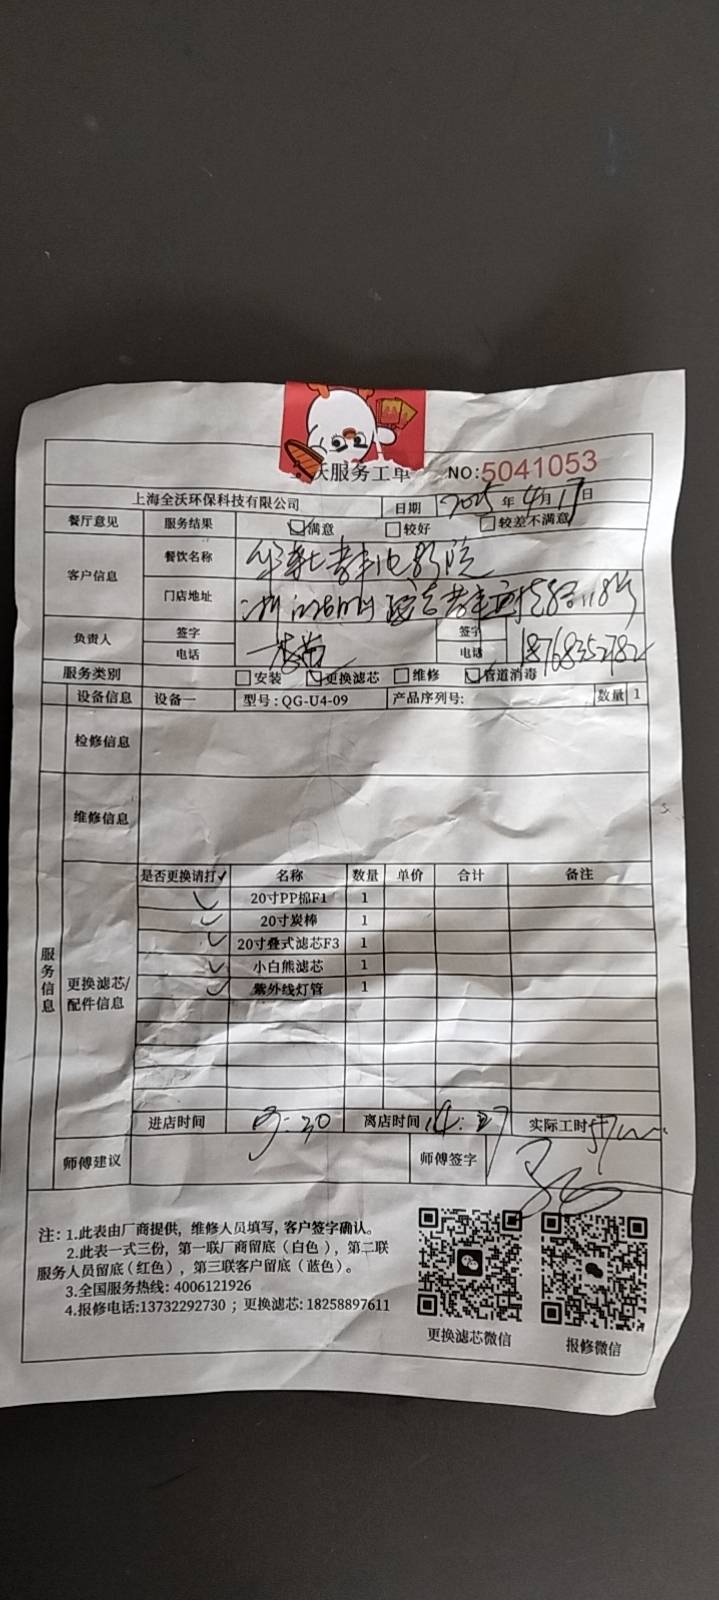 沃服务工单 NO:5041053
上海全沃环保科技有限公司 日期 2025年4月17日
餐厅意见 服务结果 满意 较好 较差不满意
客户信息 餐饮名称 电影院
门店地址 118号
负责人 签字 签字
电话 电话
服务类别 安装 更换滤芯 维修 管道消毒
设备信息 设备一 型号:QG-U4-09 产品序列号: 数量 1
检修信息
维修信息
服务信息
更换滤芯/配件信息
是否更换请打✓ 名称 数量 单价 合计 备注
✓ 20寸PP棉F1 1
✓ 20寸炭棒 1
✓ 20寸叠式滤芯F3 1
✓ 小白熊滤芯 1
✓ 紫外线灯管 1
进店时间 离店时间 实际工时
师傅建议 师傅签字
注: 1.此表由厂商提供, 维修人员填写, 客户签字确认。
2.此表一式三份, 第一联厂商留底 (白色), 第二联
服务人员留底 (红色), 第三联客户留底 (蓝色)。
3.全国服务热线: 4006121926
4.报修电话:13732292730 ; 更换滤芯: 18258897611
更换滤芯微信 报修微信